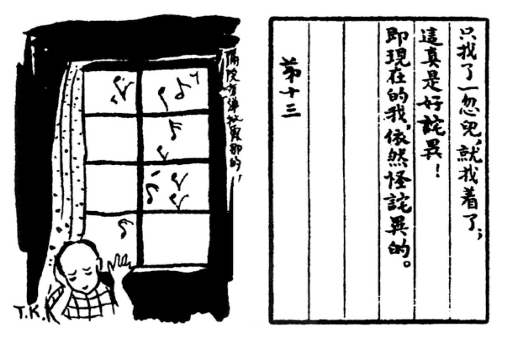 只找了一忽兒,就找着了;
這真是好詫異!
即現在的我,依然怪詫異的。
第十三
隔院有彈批霞那的!
T.K.